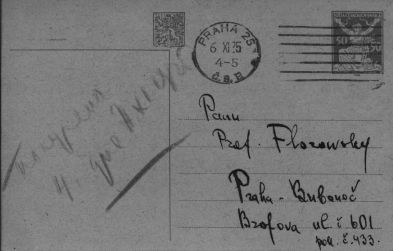 PRAHA 25
6 XI 25
4-5
Č.S.P.
ČESKOSLOVENSKO
50 50
Panu
Prof. Florowsky
Praha - Bubeneč
Brožova ul. č. 601
poř. č. 433.